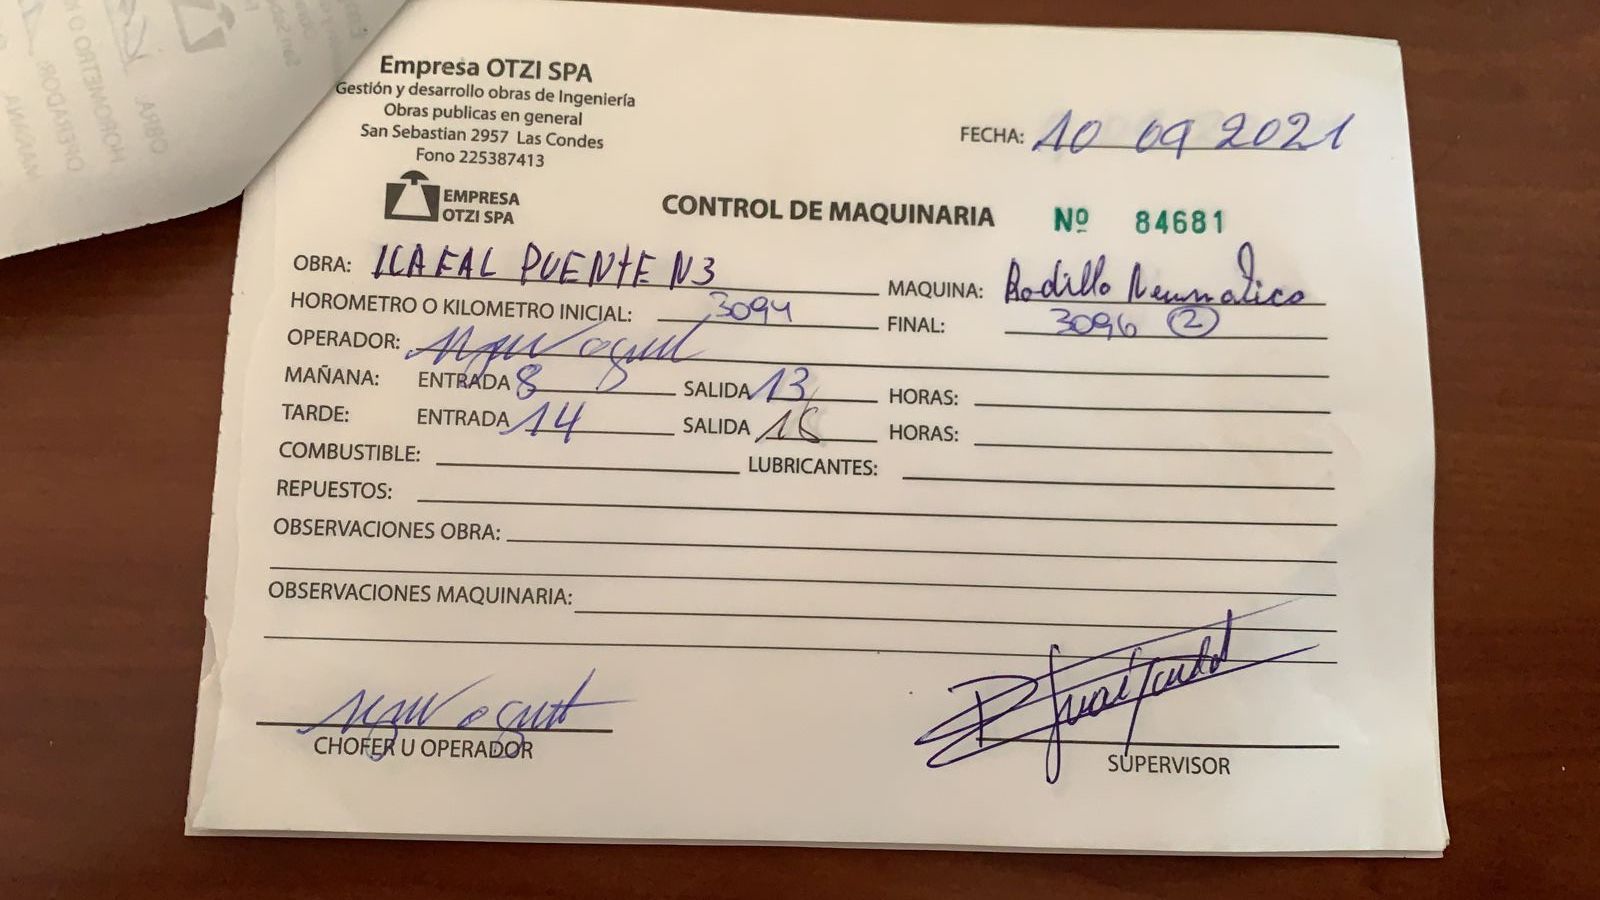 Empresa OTZI SPA
Gestión y desarrollo obras de Ingeniería
Obras publicas en general
San Sebastian 2957 Las Condes
Fono 225387413
FECHA: 10 09 2021
EMPRESA
OTZI SPA
CONTROL DE MAQUINARIA Nº 84681
OBRA: ICAFAL PUENTE N3 MAQUINA: Rodillo Neumatico
HOROMETRO O KILOMETRO INICIAL: 3094 FINAL: 3096 2
OPERADOR:
MAÑANA: ENTRADA 8 SALIDA 13 HORAS:
TARDE: ENTRADA 14 SALIDA 18 HORAS:
COMBUSTIBLE: LUBRICANTES:
REPUESTOS:
OBSERVACIONES OBRA:
OBSERVACIONES MAQUINARIA:
CHOFER U OPERADOR
SUPERVISOR